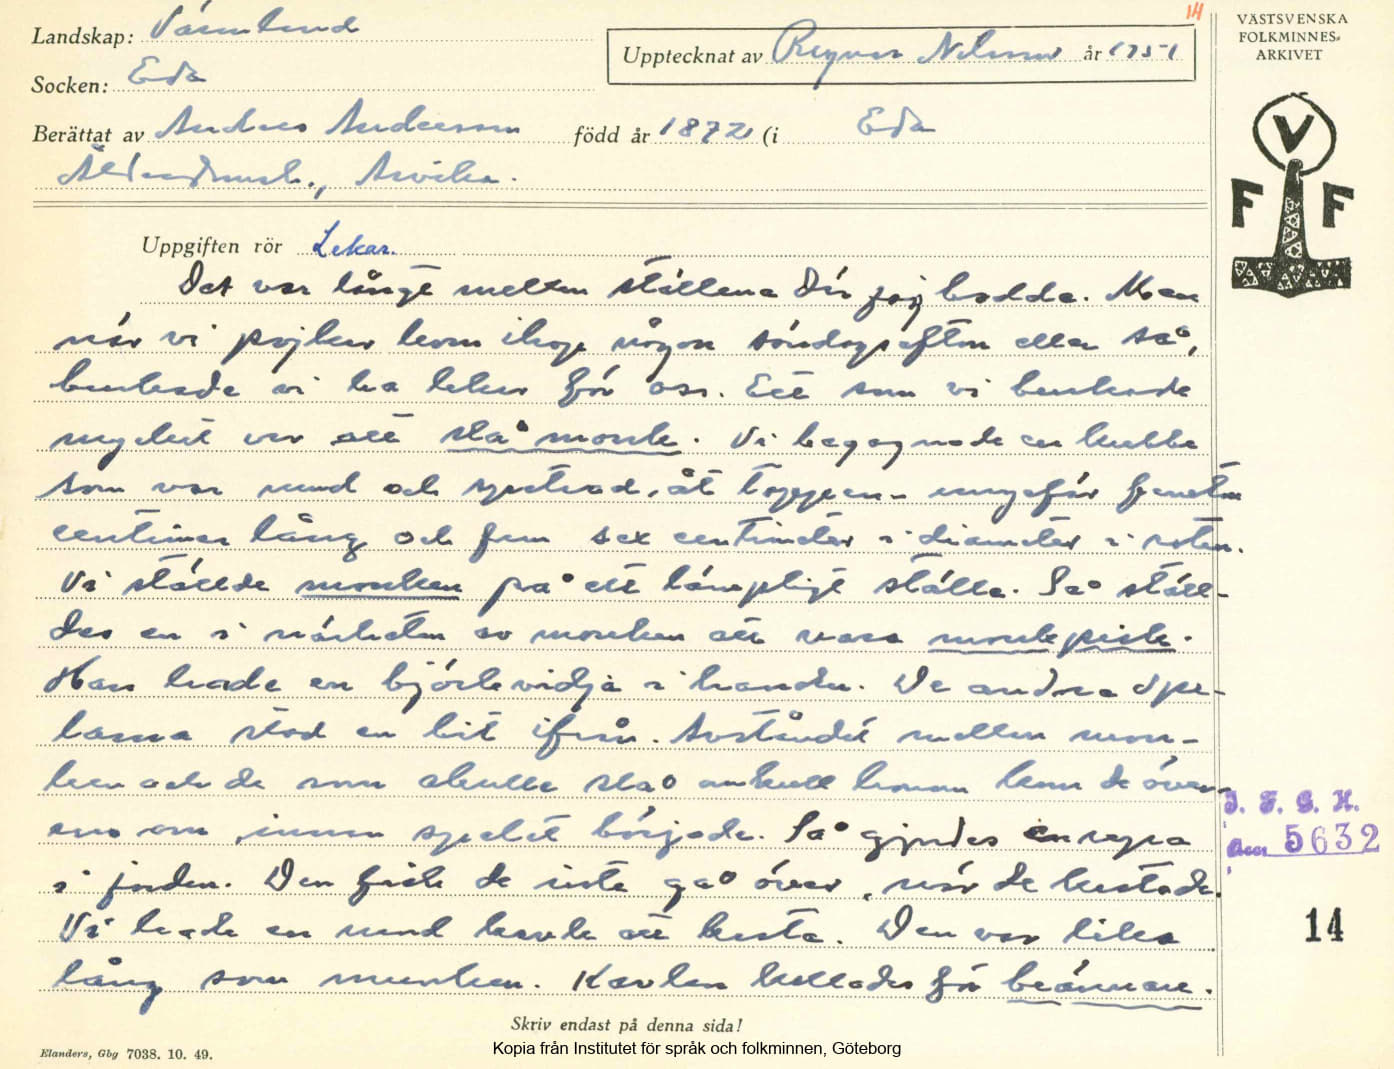 14
Landskap: Värmland
Upptecknat av Ragnar Nilsson år 1951
VÄSTSVENSKA
FOLKMINNES-
ARKIVET
Socken: Eda
Berättat av Anders Andersson född år 1872 (i Eda
Ålderdomsh., Arvika.
V
F F
Uppgiften rör Lekar.
Det var långt mellan ställena där jag bodde. Men
när vi pojkar kom ihop någon söndagsafton eller så,
brukade vi ha lekar för oss. Ett som vi brukade
mycket var att slå monk. Vi begagnade en kubbe
som var rund och spetsad åt toppen - ungefär femton
centimer lång och fem sex centimeter i diameter i roten.
Vi ställde monken på ett lämpligt ställe. Så ställ-
des en i närheten av monken att vara monkpisk.
Han hade en björkvidja i handen. De andra spe-
larna stod en bit ifrån. Avståndet mellan mon-
ken och de som skulle slå omkull honom kom de överens
ens om, innan spelet började. Så gjordes en repa
i jorden. Den fick de inte gå över, när de kastade.
Vi hade en rund kavle att kasta. Den var lika
lång som munken. Kavlen kallades för
I. F. G. H.
5632
14
Skriv endast på denna sida!
Elanders, Gbg 7038. 10. 49.
Kopia från Institutet för språk och folkminnen, Göteborg